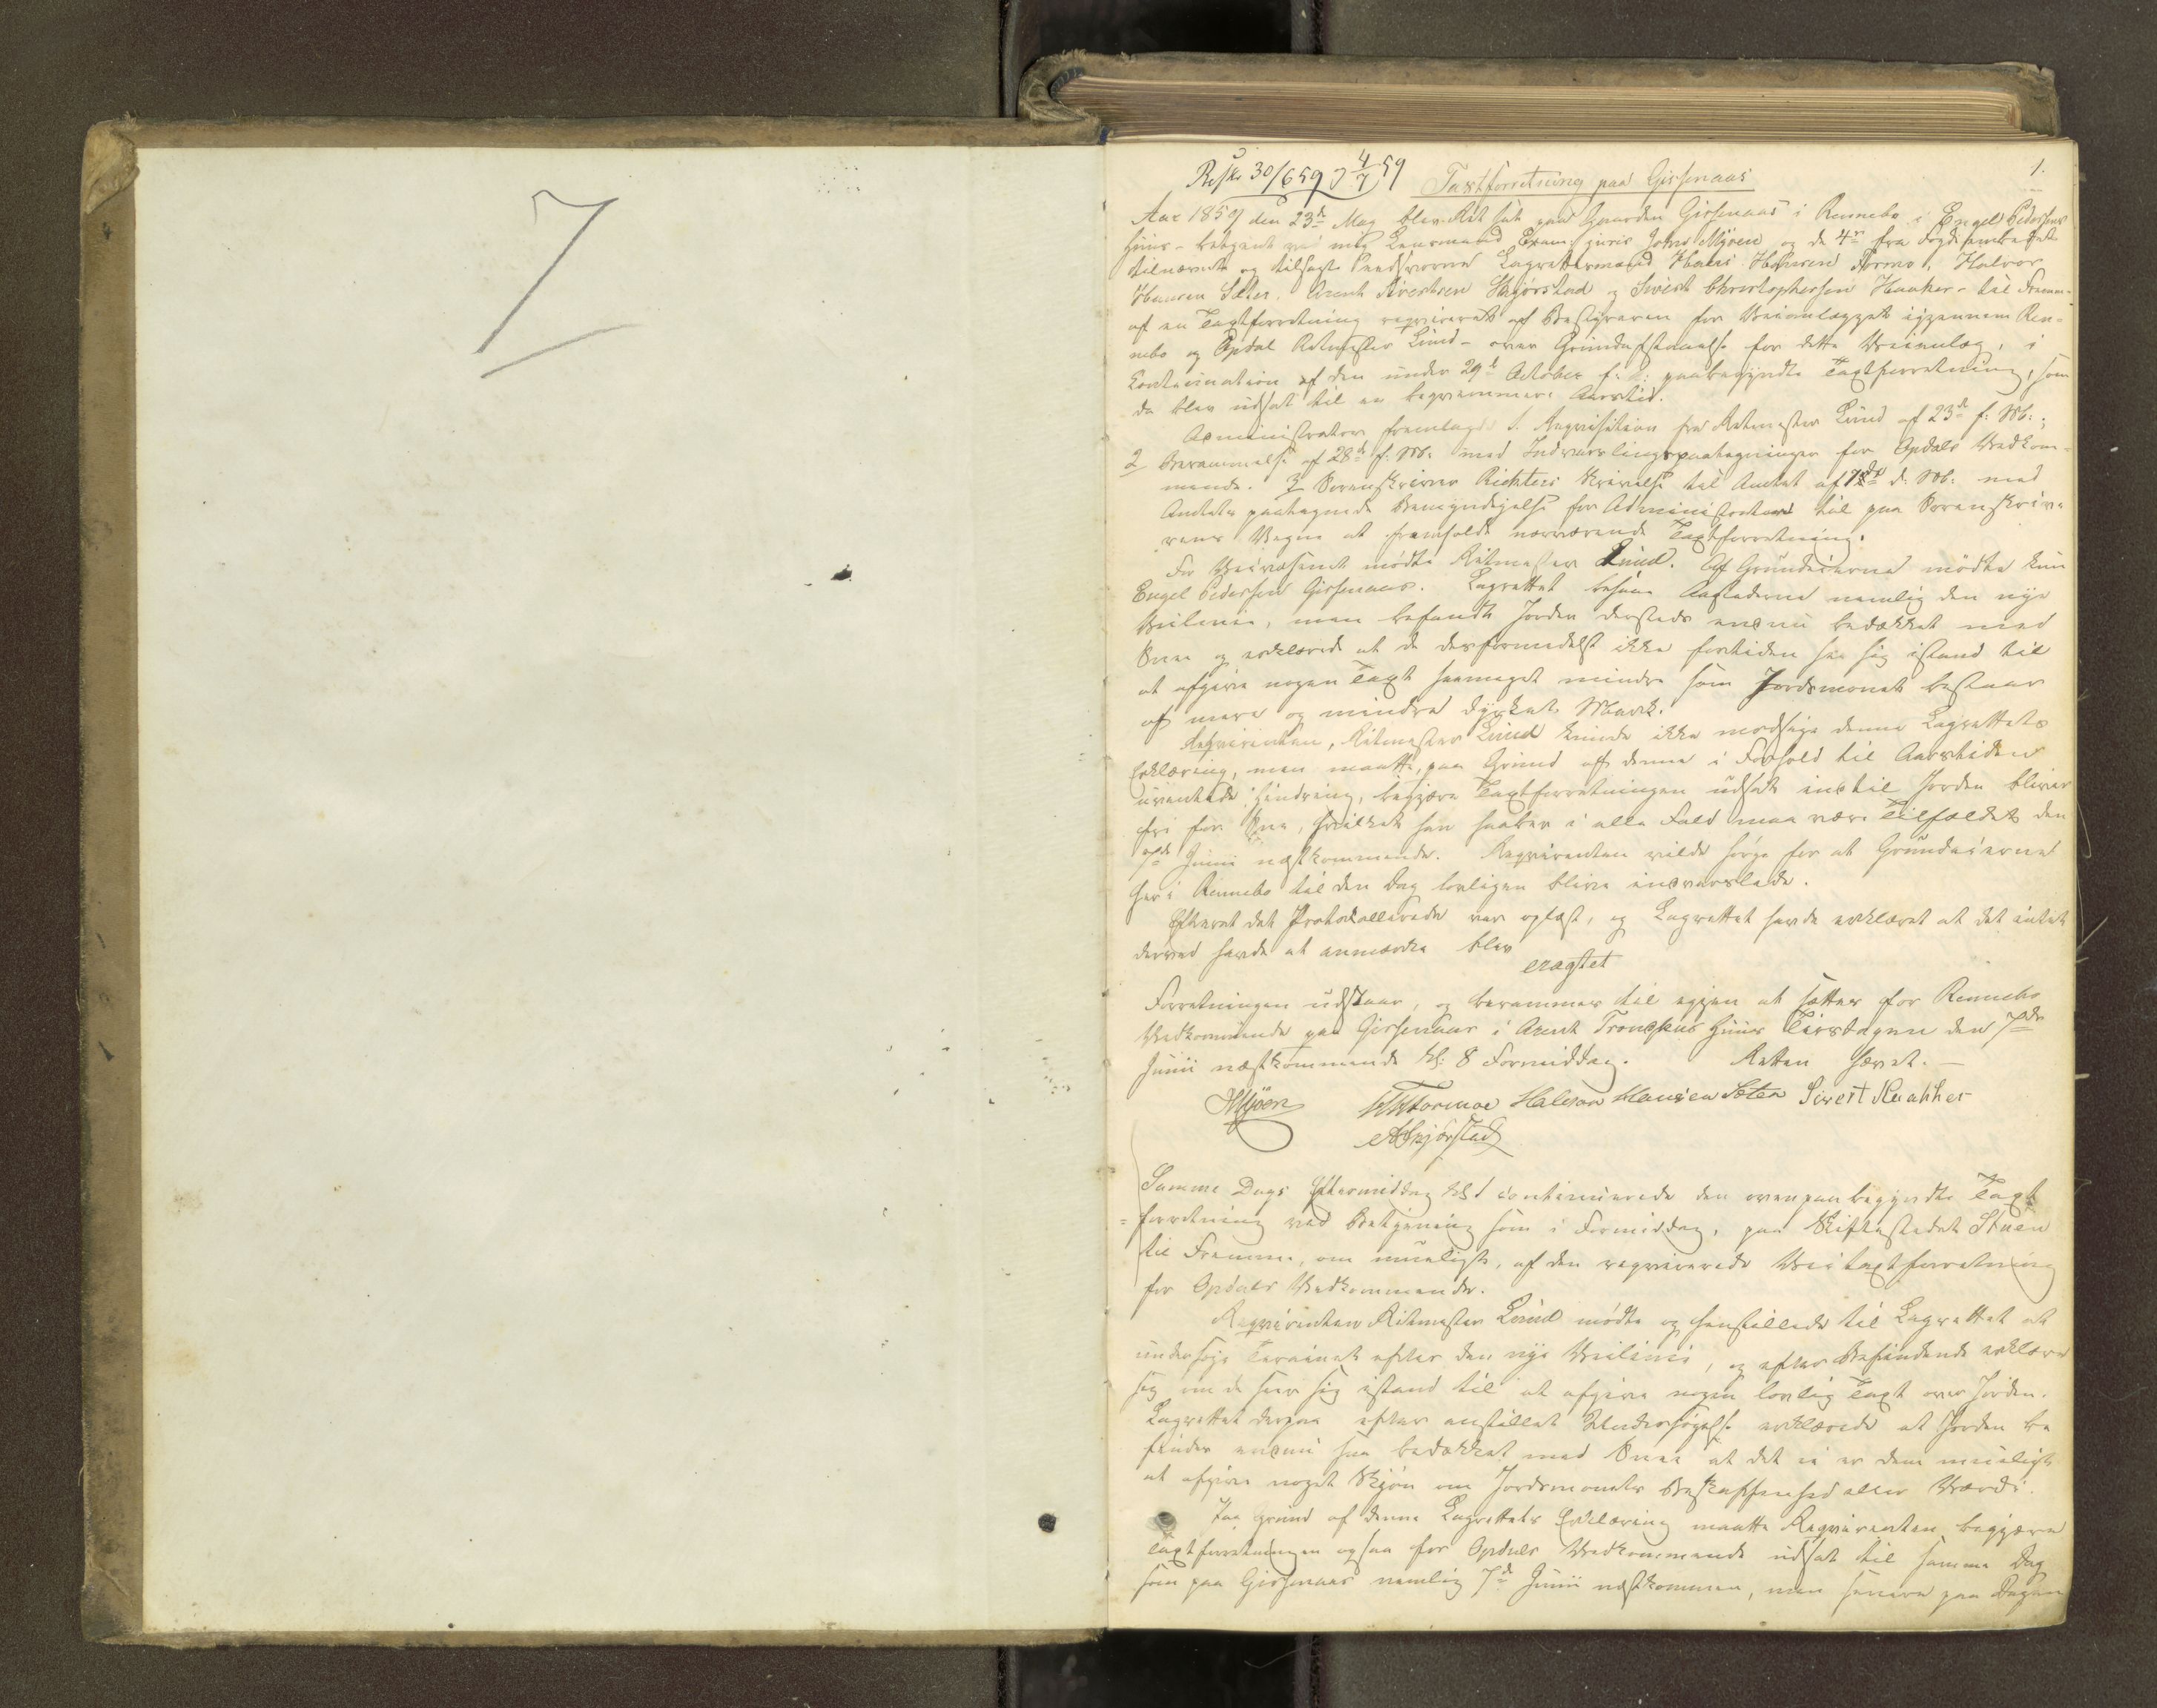 7
1.
Beskr 30/6 59 J 4/7 59
Taxtforretning paa Gissenaas
Aar 1859 den 23de May blev Ret sat paa Gaarden Gisnaas i Rennebo i Engel Pedersens
Huus - betjent ved mig Lensmand Exam. juris John Mjøen og de 4re fra Fogdeembedet
tilnævnte og tilsagte Eedsvorne Laugrettesmænd Hans Hansen Tormo, Halvor
Hansen Sæter, Arent Sivertsen Skjørstad og Sivert Christophersen Haaker - til Fremme
af en Taxtforretning reqvireret af Bestyreren for Veianlægget igjennem Ren-
nebo og Opdal Ritmester Lund - over Grundafstaaelse for dette Veianlæg, i
Continuation af den under 29de October f: A: paabegyndte Taxtforretning, som
da blev udsat til en beqvemmere Aarstid.
Administrator fremlagde 1. Reqvisition fra Ritmester Lund af 23de f: M:;
2 Berammelse af 28de f: M: med Indvarslingspaategninger for Opdals Vedkom-
mende. 3 Sorenskriver Richters Skrivelse til Amtet af 17de d: M: med
Amtets paategnede Bemyndigelse for Administrator til paa Sorenskrive-
rens Vegne at fremholde nærværende Taxtforretning.
For Veivæsenet mødte Ritmester Lund. Af Grundeierne mødte kun
Engel Pedersen Gisnaas. Lagrettet besaae Aastederne nemlig den nye
Veilinie, men befandt Jorden dersteds endnu bedækket med
Snee og erklærede at de derformedelst ikke fortiden saa sig istand til
at afgive nogen Taxt saameget mindre som Jordsmonet bestaar
af mere og mindre dyrket Mark.
Reqvirenten, Ritmester Lund kunde ikke modsige denne Lagrettets
Erklæring, men maatte, paa Grund af denne i Forhold til Aarstiden
uventede Hindring, begjære Taxtforretningen udsat indtil Jorden bliver
fri for Snee, hvilket han haaber i alle Fald maa være Tilfældet den
7de Junii næstkommende. Reqvirenten vilde sørge for at Grundeierne
her i Rennebo til den Dag lovligen blive indvarslede.
Efterat det Protocollerede var oplæst, og Lagrettet havde erklæret at det intet
derved havde at anmærke blev
eragtet
Forretningen udstaar, og berammes til igjen at sættes for Rennebo
Vedkommende paa Gisnaas i Arent Trondsens Huus Tirsdagen den 7de
Junii næstkommende Kl: 8 Formiddag. Retten hævet. -
JMjøen HHTormoe Halvor Hansen Sæter Sivert Haakker
ASkjørstad
Samme Dags Eftermiddag Kl 1 continuerede den ovenpaabegyndte Taxt
=forretning ved Betjening som i Formiddag, paa Skiftestedet Stuen
til Fremme, om mueligt, af den reqvirerede Veitaxtforretning
for Opdals Vedkommende.
Reqvirenten Ritmester Lund mødte og henstillede til Lagrettet at
undersøge Terrainet efter den nye Veilinie, og efter Befindende erklære
sig om de seer sig istand til at afgive nogen lovlig Taxt over Jorden.
Lagrettet derpaa efter anstillet Undersøgelse erklærede at Jorden be
findes endnu saa bedækket med Snee at det ei er dem mueligt
at afgive noget Skjøn om Jordsmonets Beskaffenhed eller Værdi.
Paa Grund af denne Lagrettets Erklæring maatte Reqvirenten begjære
Taxtforretningen ogsaa for Opdals Vedkommende udsat til samme Dag
som paa Gisnaas nemlig 7de Junii næstkommen, men senere paa Dagen